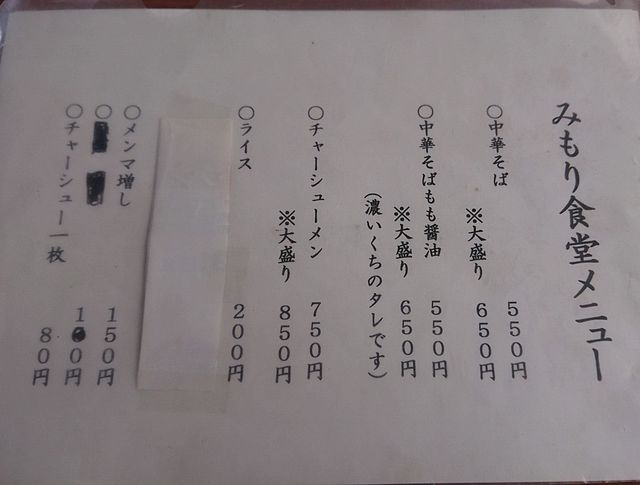 みもり食堂メニュー
○中華そば 550円
※大盛り 650円
○中華そばもも醤油 550円
※大盛り 650円
(濃いくちのタレです)
○チャーシューメン 750円
※大盛り 850円
○ライス 200円
○メンマ増し 150円
○
○チャーシュー一枚 80円